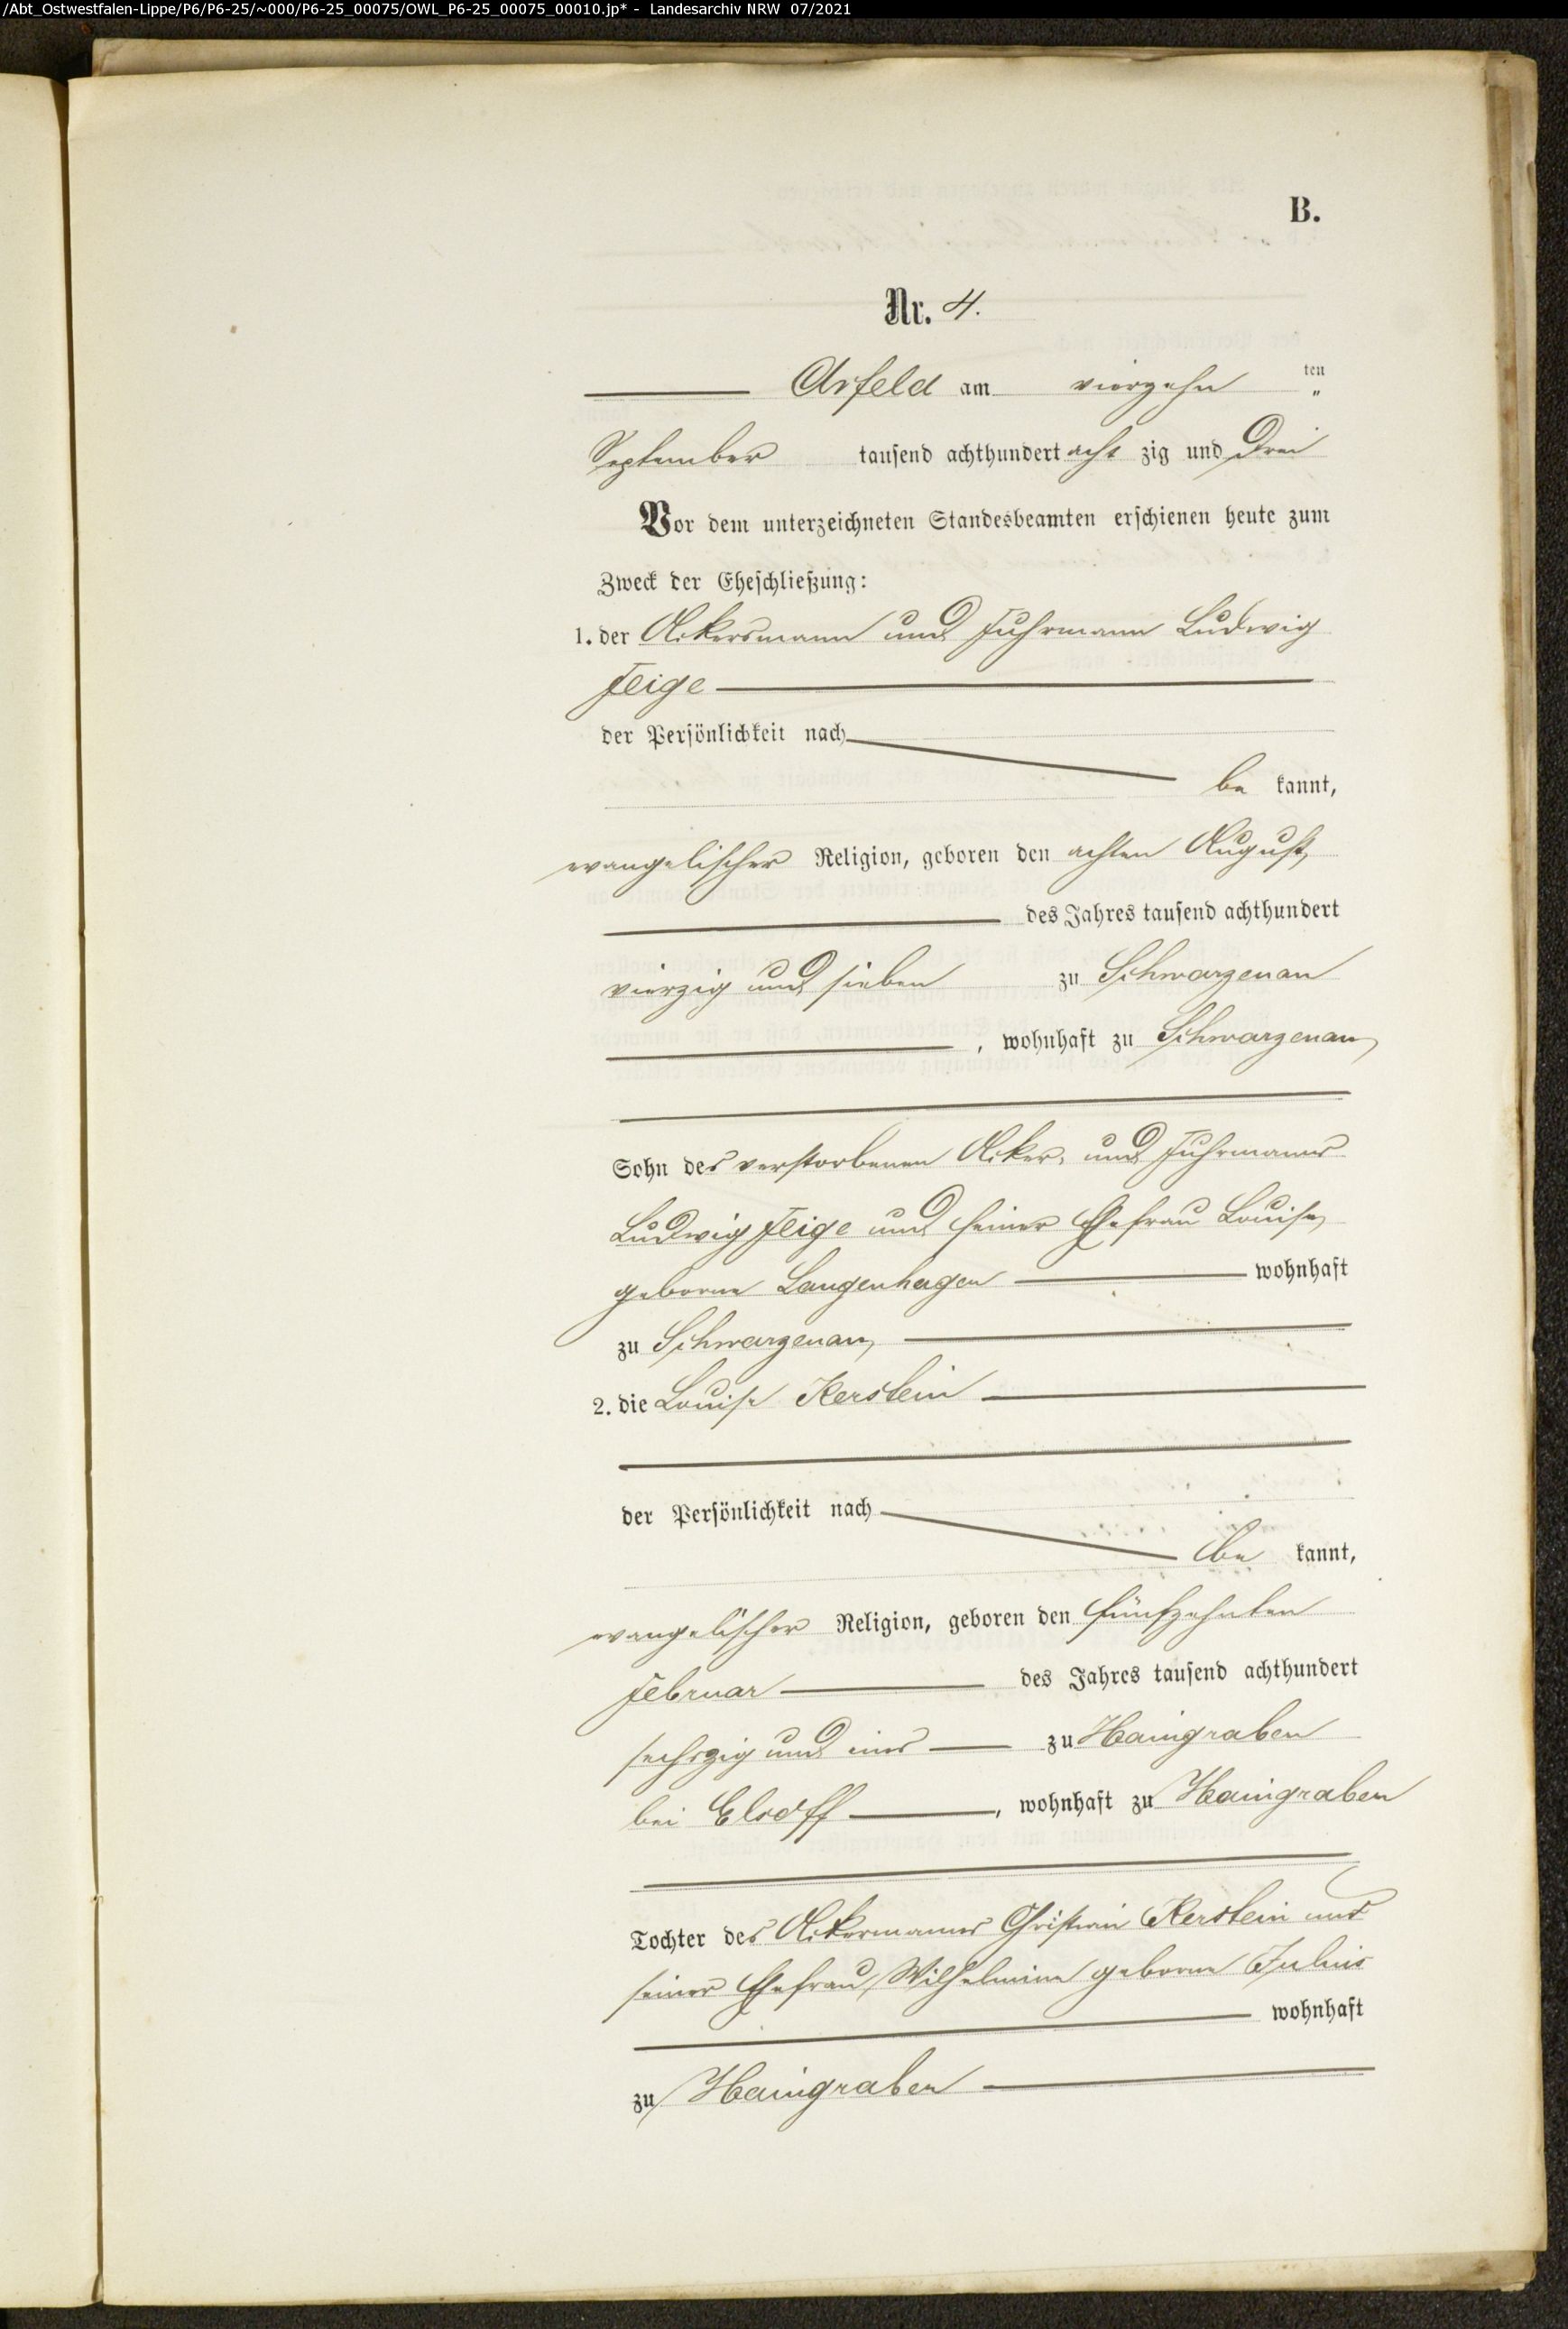 /Abt_Ostwestfalen-Lippe/P6/P6-25/~000/P6-25_00075/OWL_P6-25_00075_00010.jp* - Landesarchiv NRW 07/2021
B.
Nr. 4.
Arfeld am vierzehn ten
September tausend achthundert acht zig und drei
Vor dem unterzeichneten Standesbeamten erschienen heute zum
Zweck der Eheschließung:
1. der Ackersmann und Fuhrmann Ludwig
Feige
der Persönlichkeit nach
be kannt,
evangelischer Religion, geboren den achten August,
des Jahres tausend achthundert
vierzig und sieben zu Schwarzenau
, wohnhaft zu Schwarzenau,
Sohn des verstorbenen Acker- und Fuhrmanns
Ludwig Feige und seiner Ehefrau Louise,
geborne Langenhagen wohnhaft
zu Schwarzenau,
2. die Louise Kerstein
der Persönlichkeit nach
be kannt,
evangelischer Religion, geboren den fünfzehnten
Februar des Jahres tausend achthundert
sechszig und eins zu Haingraben
bei Elsoff, wohnhaft zu Haingraben
Tochter des Ackermannes Christian Kerstein und
seiner Ehefrau, Wilhelmine geborne
wohnhaft
zu Haingraben